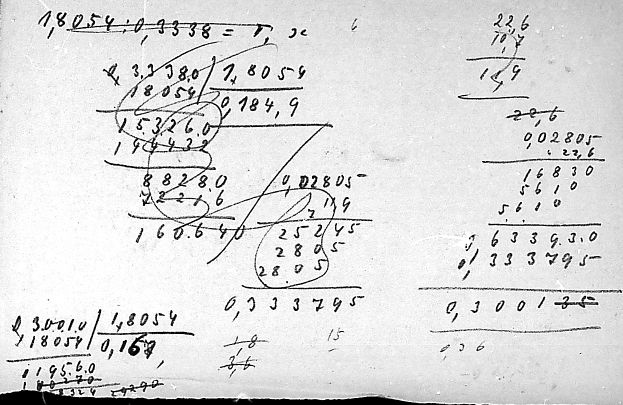 1,8054 : 0,3338 = 1, x
0,3338.0 | 1,8054
18054 | 0,184,9
15326.0
144432
8828.0
72216
160.640
0,02805
119
25245
2805
28.05
0,333795
22,6
10,7
11,9
22,6
0,02805
22,6
16830
5610
5.610
0,63393.0
0,333795
0,300135
0,36
1,8
3,6
15
0,3001.0 | 1,8054
18054 | 0,167
11956.0